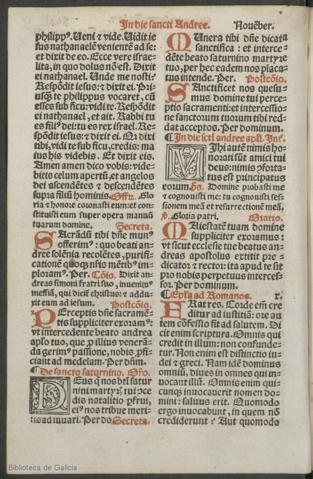 In die sancti Andree. Nouẽber.
philipp⁹. Ueni ⁊ vide. Uidit ie
sus nathanaelẽ venientẽ ad se:
et dixit de eo. Ecce vere israe-
lita, in quo dolus nõ est. Dixit
ei nathanael. Unde me nosti?
Respõdit iesus: ⁊ dixit ei. Pri-
usq̃ te philippus vocaret, cũ
esses sub ficu: vidi te. Respõdit
ei nathanael, et ait. Rabbi tu
es fili⁹ dei: tu es rex israel. Res-
põdit iesus: ⁊ dixit ei. Q dixi
tibi, vidi te sub ficu, credis: ma
ius his videbis. Et dixit eis.
Amen amen dico vobis: vide-
bitis celum apertũ, et angelos
dei ascendẽtes ⁊ descendẽtes
supra filiũ hominis. Offer. Glo
ria ⁊ honore coronasti eum: et con
stituisti eum super opera manuũ
tuarum domine. Secreta.
Sacrandũ tibi dñe mun⁹
offerim⁹: quo beati an-
dree solẽnia recolẽtes, purifi-
cationẽ quoq nr̃is mẽtib⁹ im
ploram⁹. Per. Cõio. Dixit an-
dreas simoni fratri suo, inuenim⁹
messiã, qui dicit̃ christus: ⁊ addu-
xit eum ad iesum. Postcõio.
Perceptis dñe sacramẽ-
tis suppliciter exoram⁹:
vt intercedente beato andrea
apl̃o tuo, que p̃ illius venerã-
da gerim⁹ passione, nobis p̃fi-
ciant ad medelam. Per dñm.
De sancto saturnino. Oro.
Deus q̃ nos beati satur
nini martyr̃ tui cõce
dis natalitio p̃frui,
ei⁹ nos tribue meri-
tis adiuuari. Per do Secreta.
Munera tibi dñe dicata
sanctifica: et interce-
dẽte beato saturnino martyre
tuo, per hec eadem nos placa-
tus intende. Per. Postcõio.
Sanctificet nos quesu-
mus domine tui perce-
ptio sacramenti: et intercessio-
ne sanctorum tuorum tibi red-
dat acceptos. Per dominum.
In die scti andree apl̃i. Int̃.
Mihi autẽ nimis ho-
norati sũt amici tui
deus: nimis cõforta-
tus est principatus
eorum. Ps. Domine probasti me
⁊ cognouisti me: tu cognouisti ses-
sionem meã et resurrectionẽ meã.
Gloria patri. Oratio.
Maiestatẽ tuam domine
suppliciter exoramus:
vt sicut ecclesie tue beatus an-
dreas apostolus extitit pre-
dicator ⁊ rector: ita apud te sit
pro nobis perpetuus interces-
sor. Per dominum.
Epl̃a ad Romanos. x.
Fratres. Corde em̃ cre
ditur ad iustitiã: ore au
tem cõfessio fit ad salutem. Di
cit enim scriptura. Omnis qui
credit in illum: non confunde-
tur. Non enim est distinctio iu
dei ⁊ greci. Nam idẽ dominus
omniũ, diues in omnes qui in-
uocant illũ. Omnis enim qui-
cunq̃ inuocauerit nomen do-
mini: saluus erit. Quomodo
ergo inuocabunt, in quem nõ
crediderunt? Aut quomodo
Biblioteca de Galicia